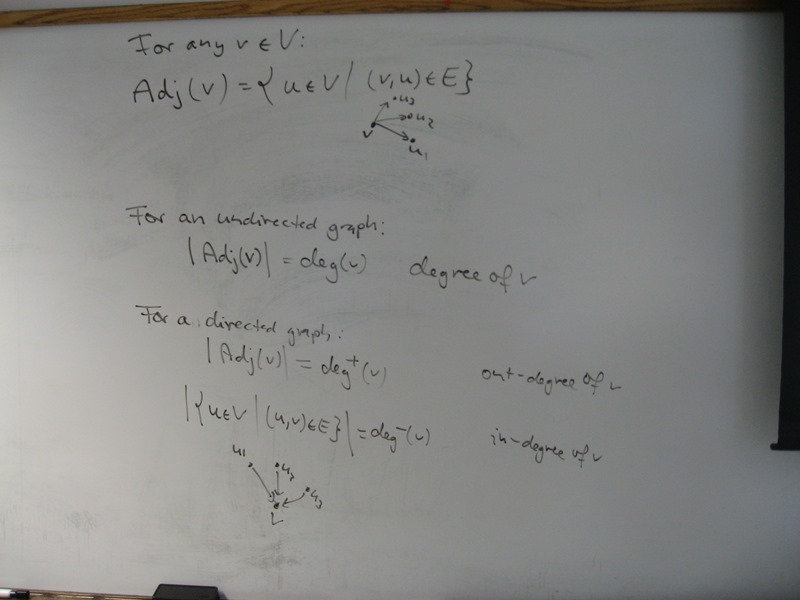 For any v ∈ V:
Adj(v) = { u ∈ V | (v,u) ∈ E }
u3
u2
v
u1
For an undirected graph:
|Adj(v)| = deg(v) degree of v
For a directed graph:
|Adj(v)| = deg⁺(v) out-degree of v
|{u ∈ V | (u,v) ∈ E}| = deg⁻(v) in-degree of v
u1
u2
u3
v